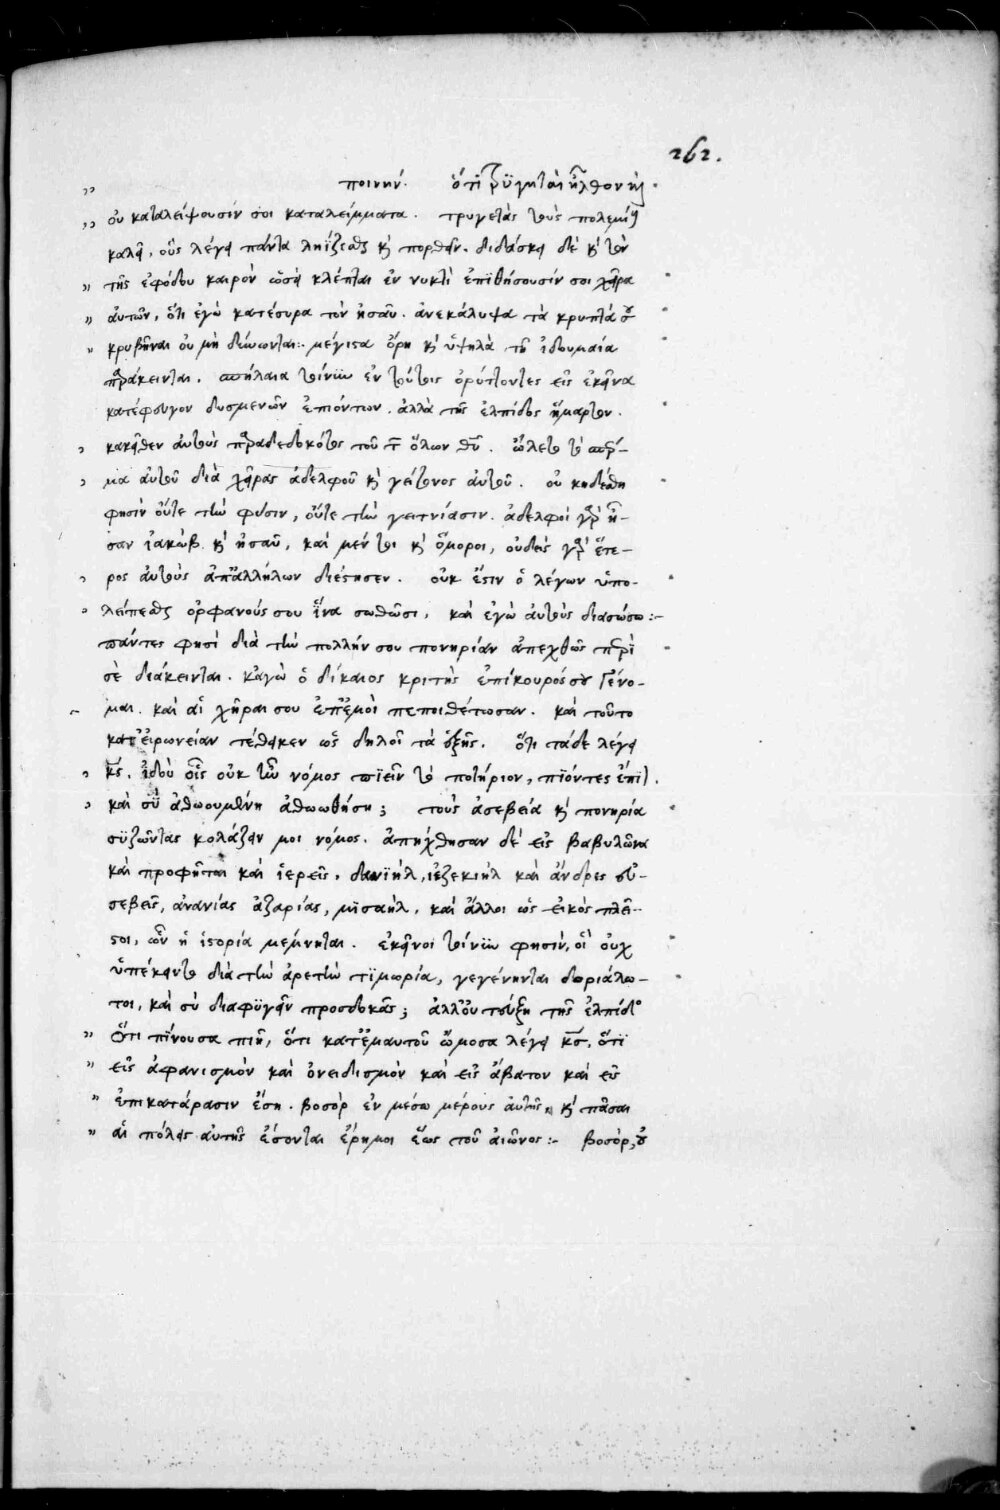 262.
ποινήν. ὅτι τρυγηταὶ ἦλθον
οὐ καταλείψουσίν σοι καταλείμματα. τρυγητὰς τοὺς πολεμίους
καλεῖ, οὓς λέγει πάντα ληΐζεσθαι κ̀ πορθεῖν. διδάσκει δὲ κ̀ τὸν
τῆς ἐφόδου καιρὸν ὡσεὶ κλέπται ἐν νυκτὶ ἐπιθήσουσίν σοι χεῖρα
αὐτῶν, ὅτι ἐγὼ κατέσυρα τὸν ἠσαῦ. ἀνεκάλυψα τὰ κρυπτὰ
κρυβῆναι οὐ μὴ δύνωνται:. μέγιστα ὄρη κ̀ ὑψηλὰ τῆ ἰδουμαία
παράκεινται. σπήλαια τοίνυν ἐν τούτοις ὀρύττοντες εἰς ἐκεῖνα
κατέφευγον δυσμενῶν ἐπιόντων. ἀλλὰ τῆς ἐλπίδος ἥμαρτον.
κακεῖθεν αὐτοὺς παραδεδωκότος τοῦ τῶν ὅλων θῦ. ὤλετο τὸ σπέρ-
μα αὐτοῦ διὰ χεῖρας ἀδελφοῦ κ̀ γείτονος αὐτοῦ. οὐκ ἠδέσθη
φησὶν οὔτε τὴν φύσιν, οὔτε τὴν γειτνίασιν. ἀδελφοὶ γὰρ ἦ-
σαν ἰακὼβ κ̀ ἠσαῦ, καὶ μέν τοι κ̀ ὅμοροι, οὐδεὶς γὰρ ἕτε-
ρος αὐτοὺς ἀπαλλήλων διέστησεν. οὐκ ἔστιν ὁ λέγων ὑπο-
λείπεσθαι ὀρφανούς σου ἵνα σωθῶσι, καὶ ἐγὼ αὐτοὺς διασώσω:-
πάντες φησὶ διὰ τὴν πολλήν σου πονηρίαν ἀπεχθῶς περὶ
σὲ διάκεινται. κἀγὼ ὁ δίκαιος κριτὴς ἐπίκουρός σου γένο-
μαι. καὶ αἱ χῆραι σου ἐπ' ἐμοὶ πεποιθέτωσαν. καὶ τοῦτο
κατ' εἰρωνείαν τέθεικεν ὡς δηλοῖ τὰ ἑξῆς. ὅτι τάδε λέγει
κς. ἰδοὺ οἷς οὐκ ἦν νόμος πϊεῖν τὸ ποτήριον, πϊόντες ἔπϊ.
καὶ σὺ ἀθωουμένη ἀθωωθήση; τοὺς ἀσεβεία κ̀ πονηρία
συζῶντας κολάζειν μοι νόμος. ἀπήχθησαν δὲ εἰς βαβυλῶνα
καὶ προφῆται καὶ ἱερεῖς, δανιὴλ, ἰεζεκιὴλ καὶ ἄνδρες εὐ-
σεβεῖς, ἀνανίας ἀζαρίας, μϊσαὴλ, καὶ ἄλλοι ὡς εἰκὸς πλεῖ-
στοι, ὧν ἡ ἱστορία μέμνηται. ἐκεῖνοι τοίνυν φησὶν, οἳ οὐχ
ὑπέκειντο διὰ τὴν ἀρετὴν τϊμωρία, γεγένηνται δοριάλω-
τοι, καὶ σὺ διαφϋγεῖν προσδοκᾶς; ἀλλ' οὐ τεύξη τῆς ἐλπίδος
ὅτι πίνουσα πιῆ, ὅτι κατ' ἐμαυτοῦ ὤμοσα λέγει κς, ὅτϊ
εἰς ἀφανισμὸν καὶ ὀνειδισμὸν καὶ εἰς ἄβατον καὶ εἰς
ἐπικατάρασιν ἔση. βοσὸρ ἐν μέσω μέρους αὐτῆς, κ̀ πᾶσαι
αἱ πόλεις αὐτῆς ἔσονται ἔρημοι ἕως τοῦ αἰῶνος:- βοσὸρ, οὐ